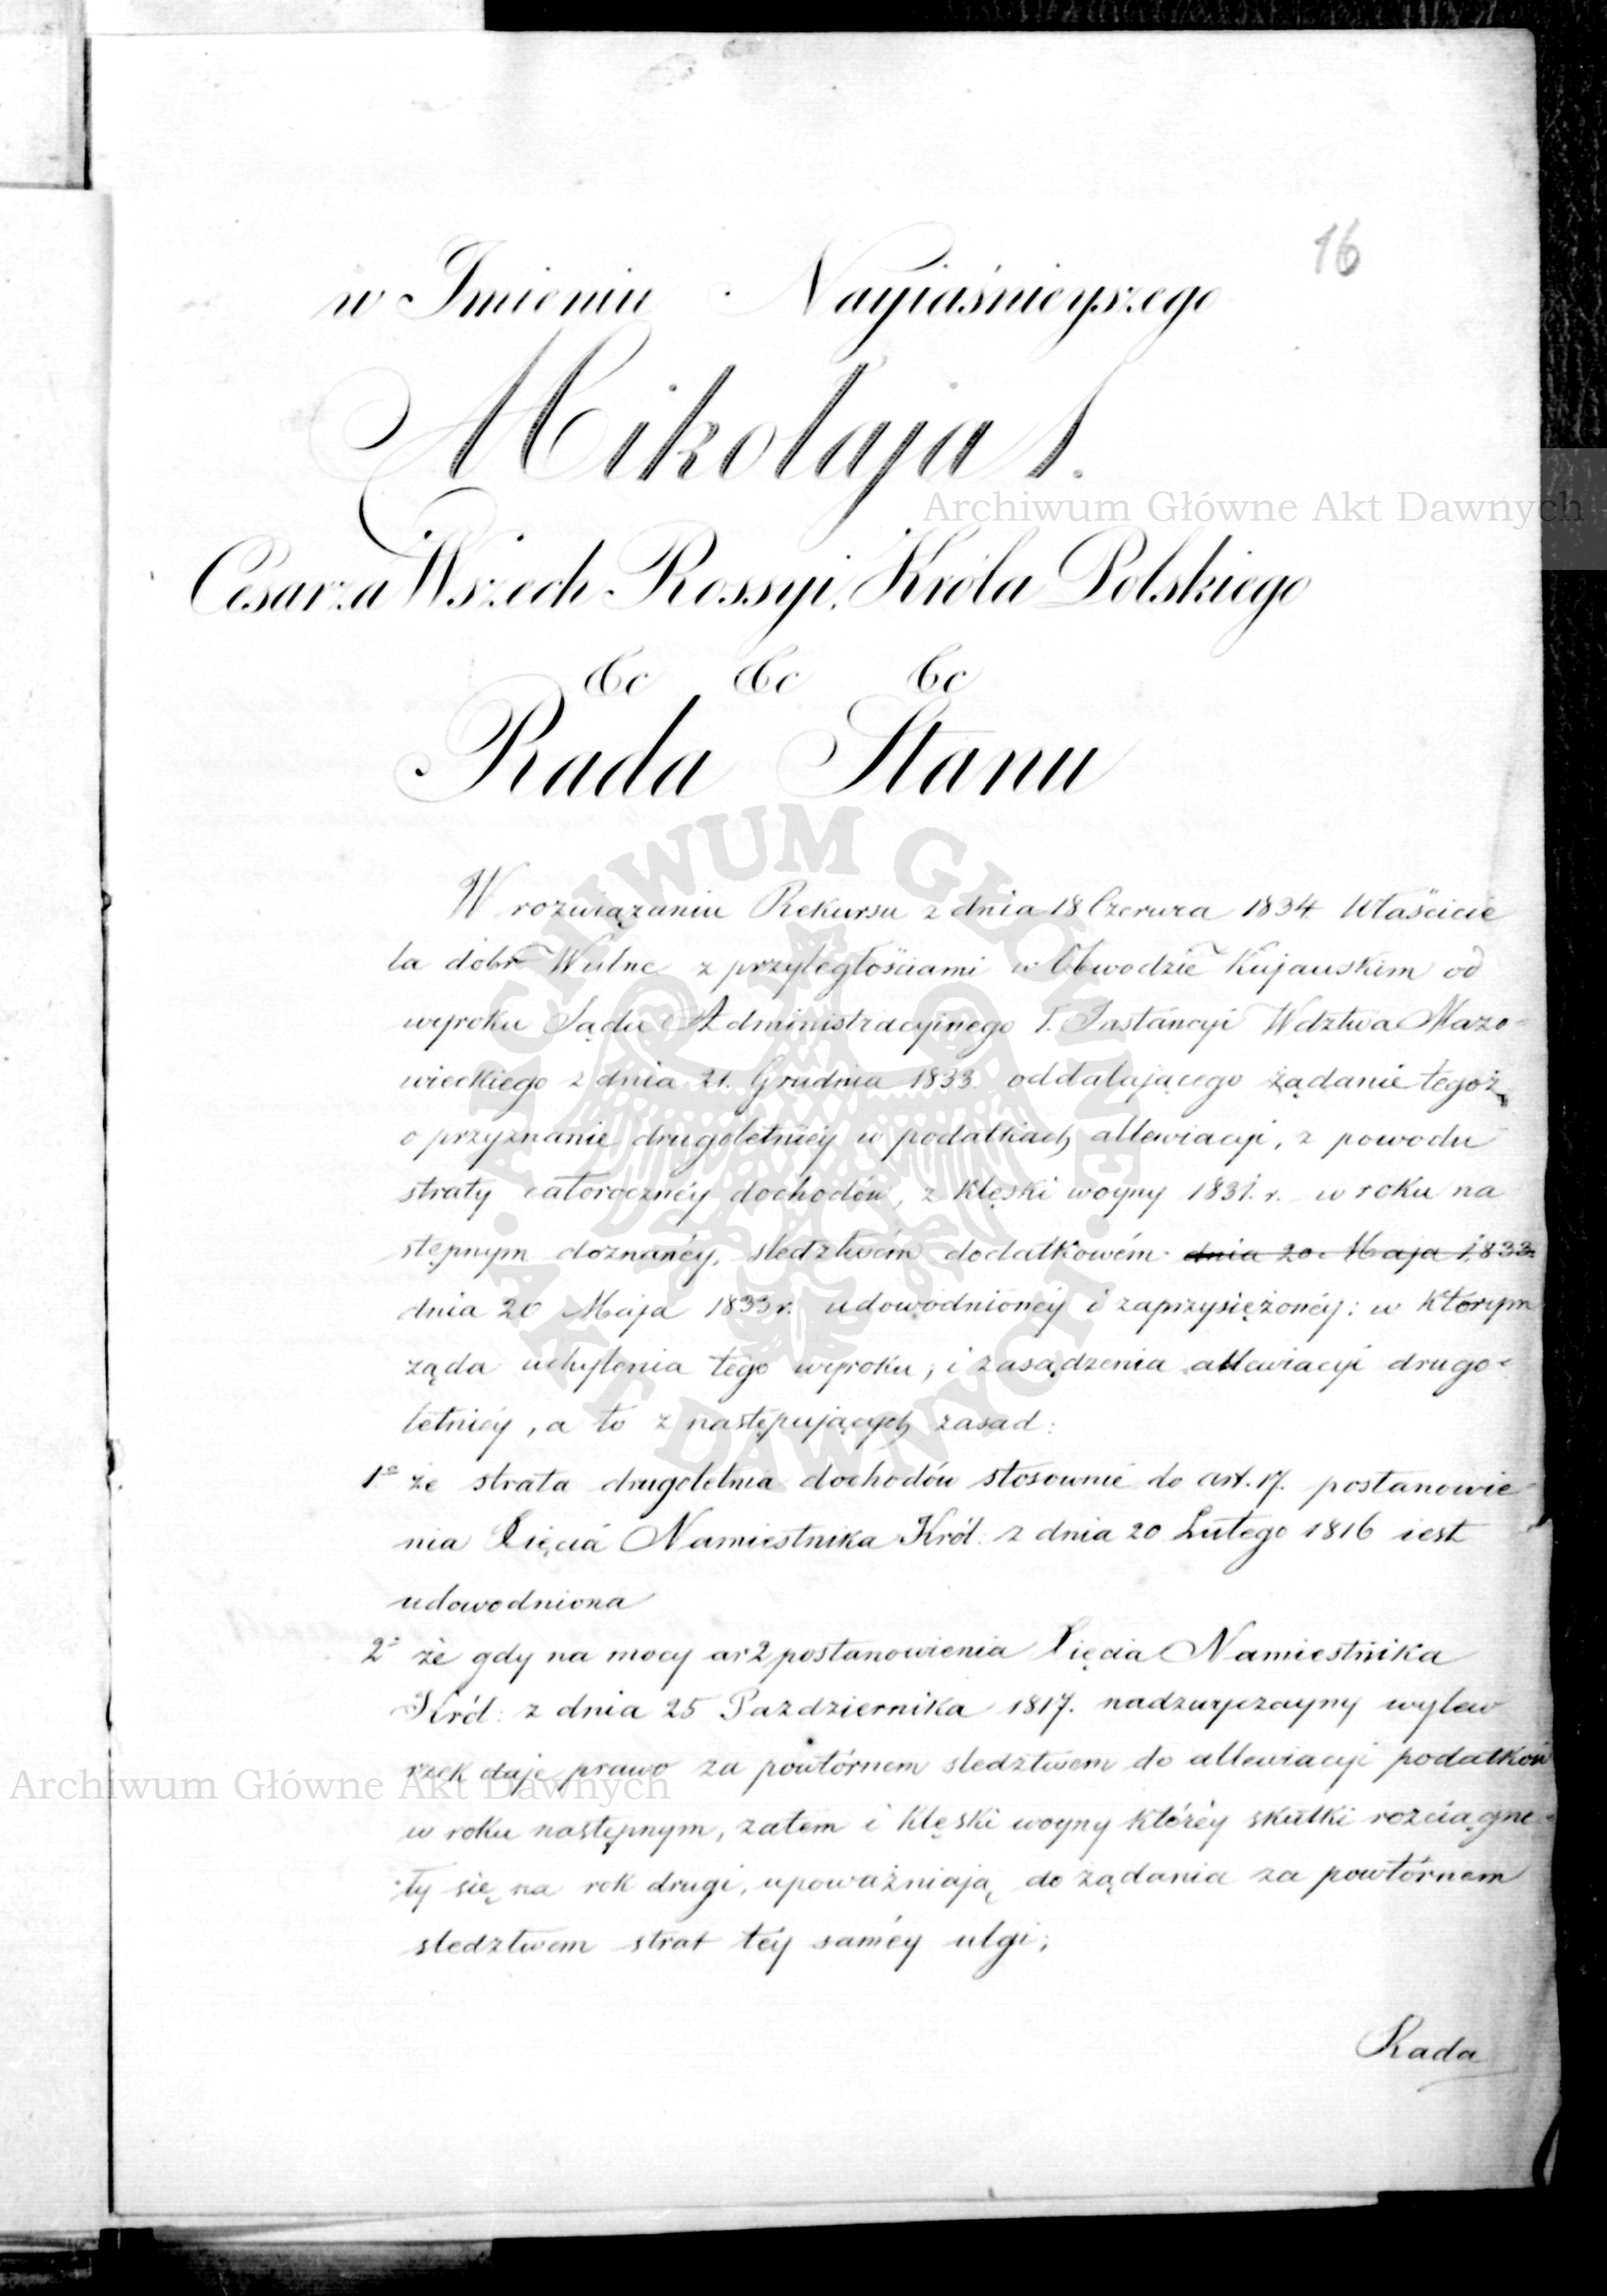 16
w Imieniu Nayiaśnieyszego
Mikołaja I.
Cesarza Wszech Rossyi, Króla Polskiego
&c &c &c
Rada Stanu
W rozwiązaniu Rekursu z dnia 18 Czerwca 1834 Właścicie
la dóbr z przyległościami w Obwodzie Kujawskim od
wyroku Sądu Administracyjnego I. Instancyi Wdztwa Mazo-
wieckiego z dnia 21. Grudnia 1833. oddalającego żądanie tegoż
o przyznanie drugoletniéy w podatkach allewiacyi, z powodu
straty całorocznéy dochodów, z klęski woyny 1831. r. w roku na
stępnym doznanéy, sledztwém dodatkowém dnia 20 Maja 1833
dnia 20 Maja 1833 r. udowodnionéy i zaprzysiężonéy: w którym
żąda uchylenia tego wyroku, i zasądzenia allewiacyi drugo-
letniéy, a to z następujących zasad:
1º że strata drugoletnia dochodów stosownie do art. 17. postanowie
nia Xięcia Namiestnika Król: z dnia 20 Lutego 1816 iest
udowodniona
2º że gdy na mocy ar 2 postanowienia Xięcia Namiestnika
Król: z dnia 25 Pazdziernika 1817. nadzwyczayny wylew
rzek daje prawo za powtórnem sledztwem do allewiacyi podatków
w roku następnym, zatem i klęski woyny któréy skutki rozciągne-
ły się na rok drugi, upoważniają do żądania za powtórnem
sledztwem strat téy saméy ulgi;
Rada
Archiwum Główne Akt Dawnych
Archiwum Główne Akt Dawnych
ARCHIWUM GŁÓWNE · AKT DAWNYCH ·